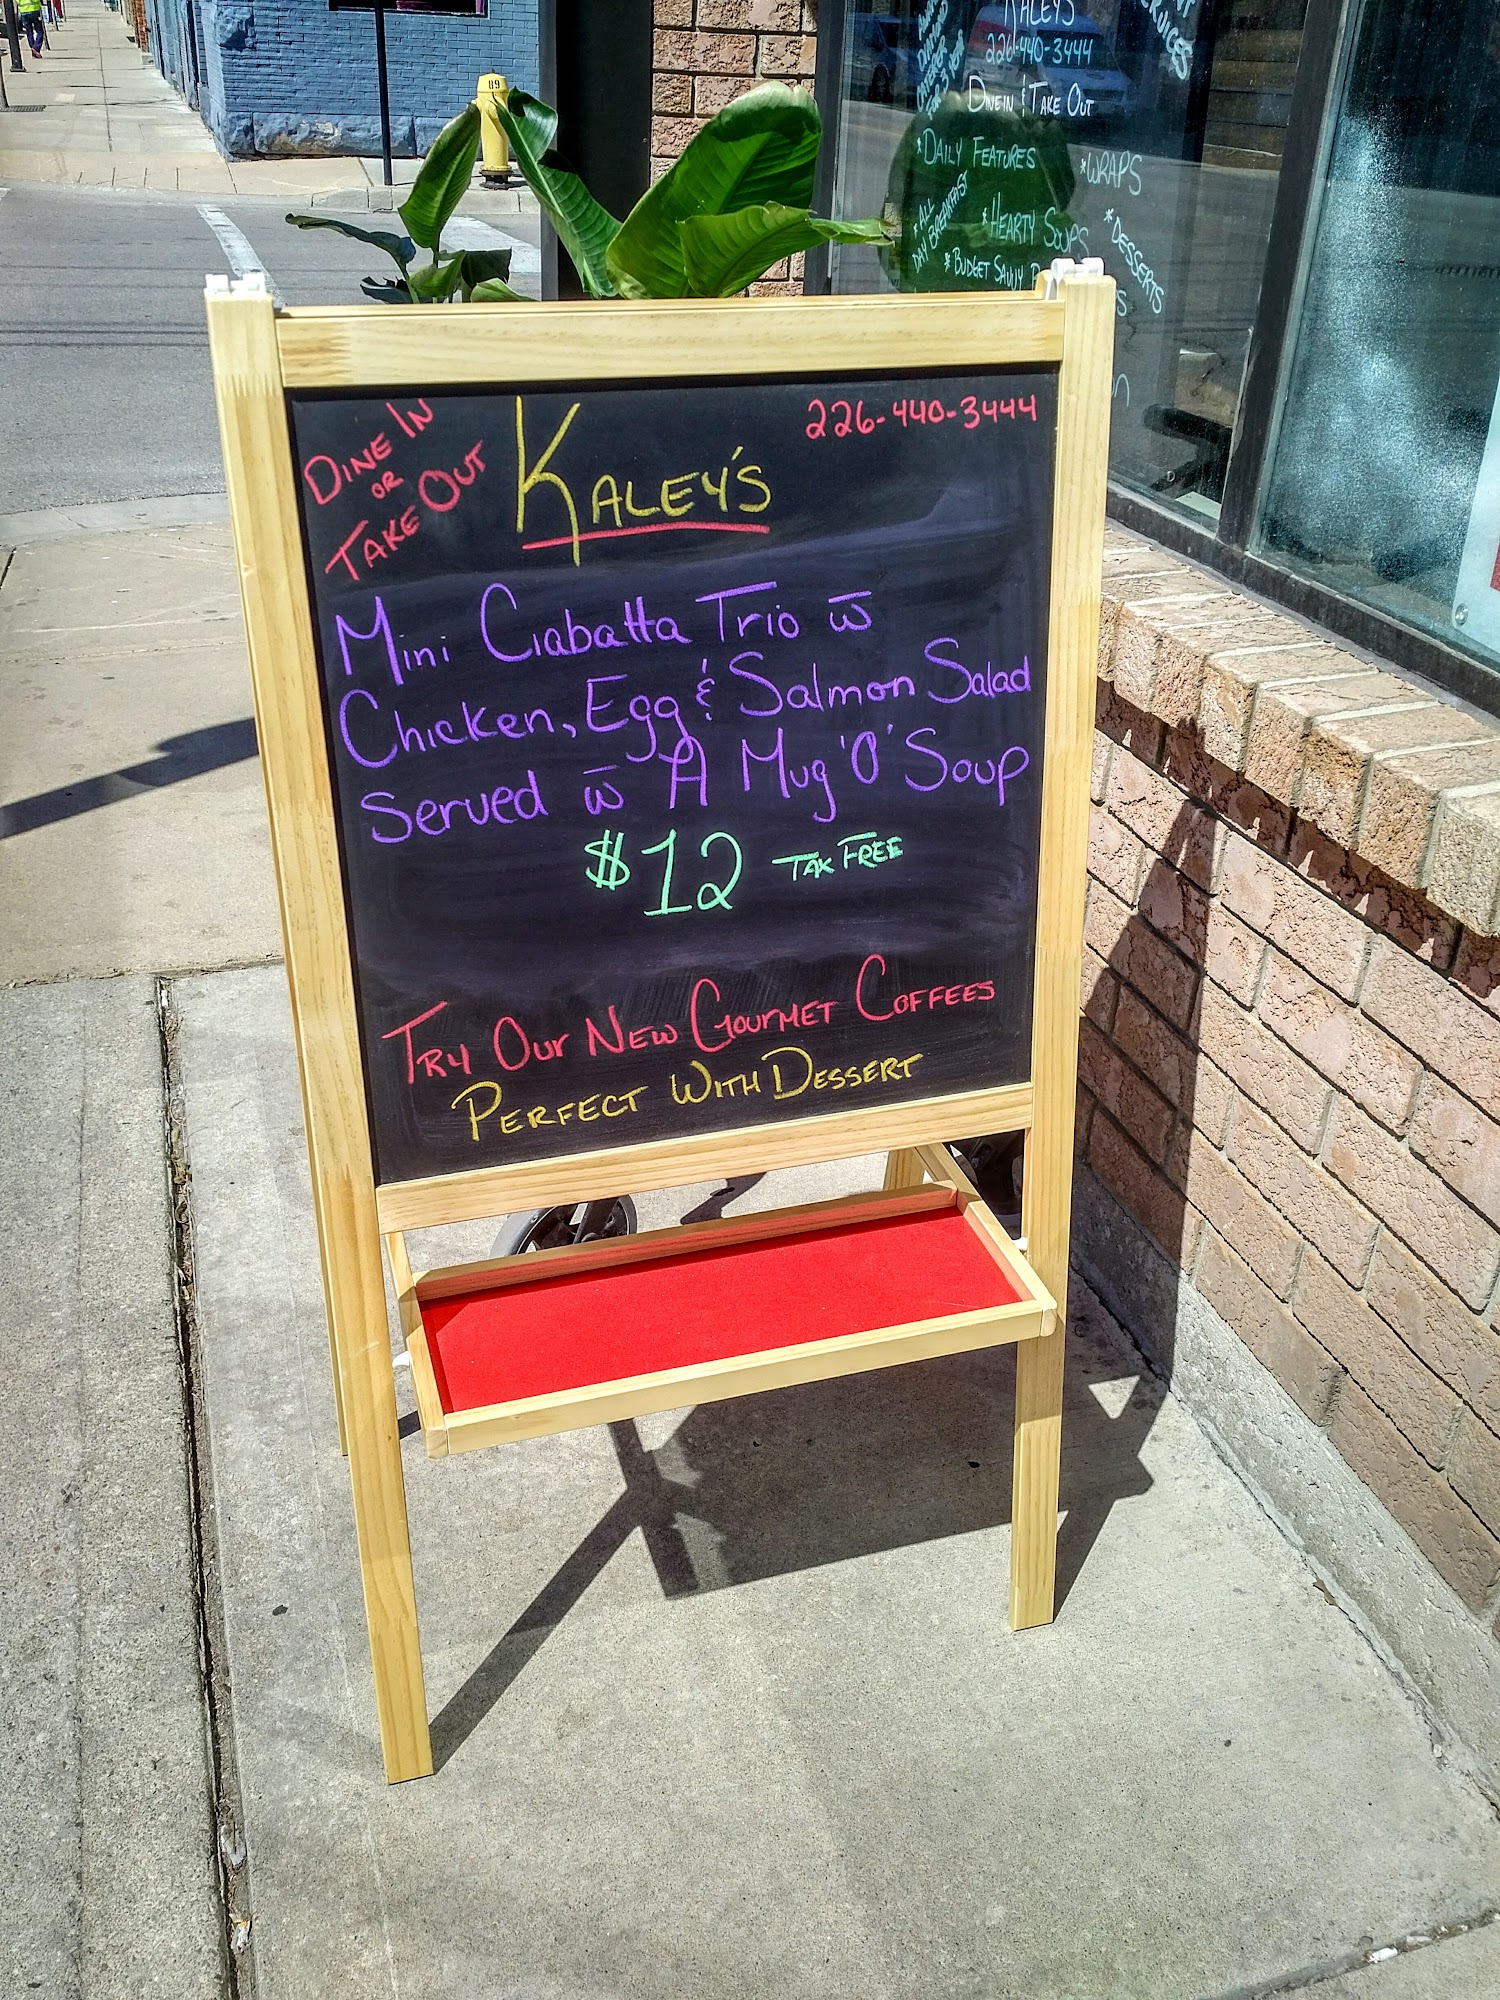 89
KALEYS
226-440-3444
DINE IN & TAKE OUT
*DAILY FEATURES
*WRAPS
*ALL DAY BREAKFAST
*HEARTY SOUPS
*DESSERTS
*BUDGET SAVVY
DINE IN
OR
TAKE OUT
KALEY'S
226-440-3444
Mini Ciabatta Trio w̅
Chicken, Egg & Salmon Salad
Served w̅ A Mug 'O' Soup
$12 TAX FREE
TRY OUR NEW GOURMET COFFEES
PERFECT WITH DESSERT